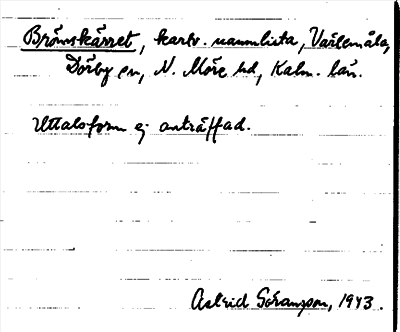 Brömskärret, kartv. namnlista, Värlemåla,
Dörby sn, N. Möre hd, Kalm. län.
Uttalsform ej anträffad.
Astrid Göransson, 1943.